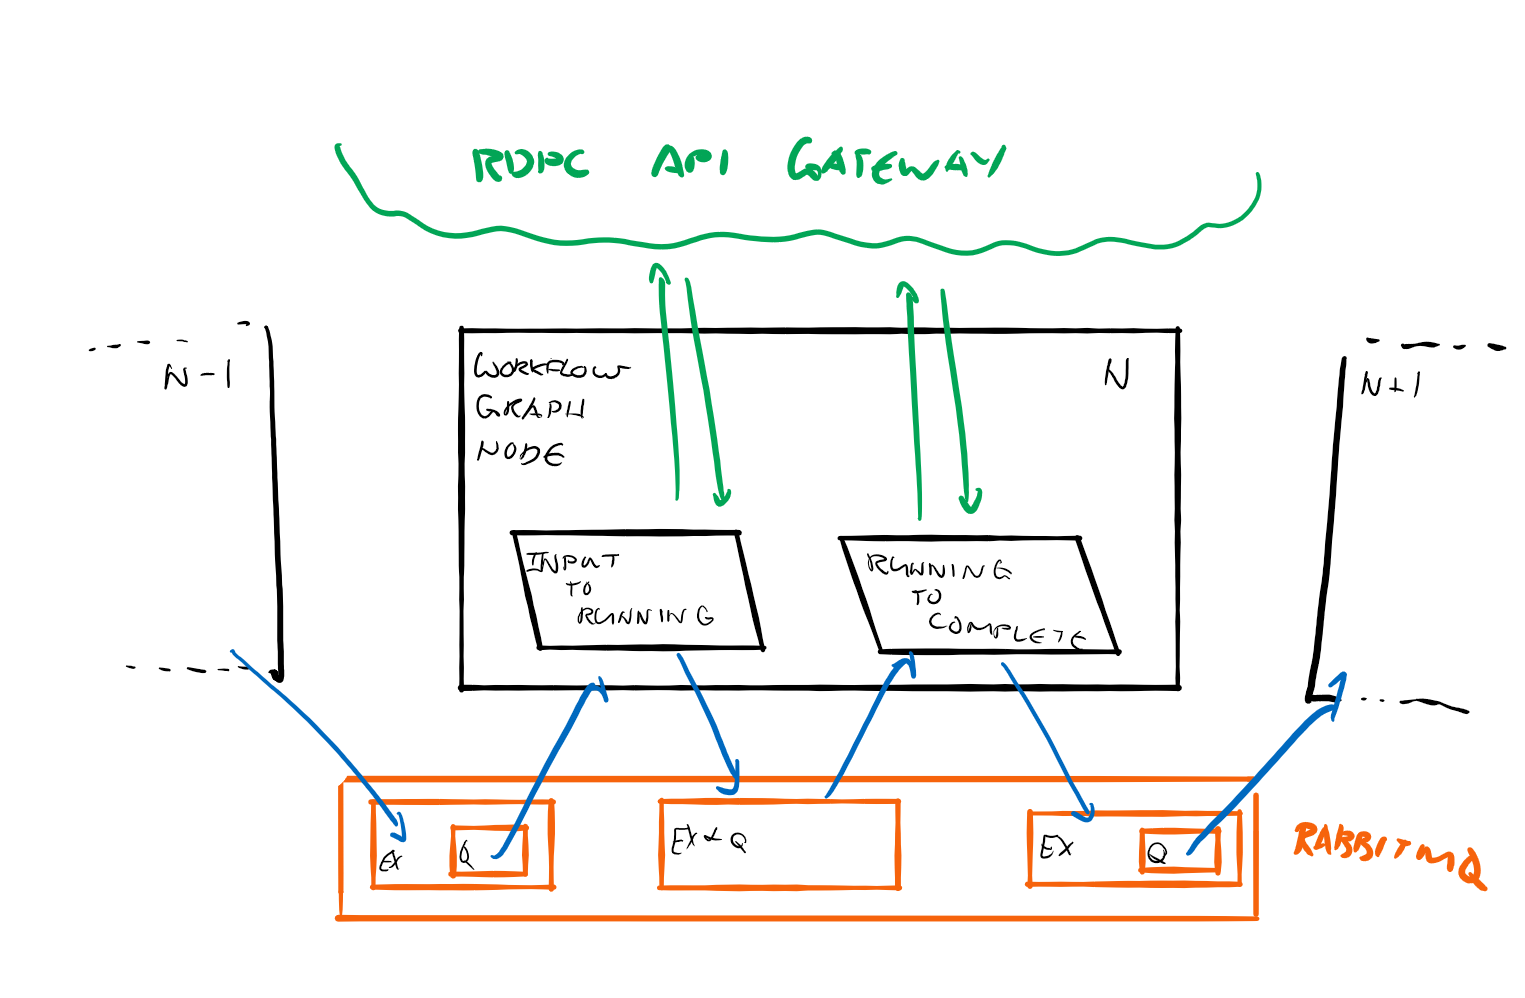 RDPC API GATEWAY
N-1
WORKFLOW
GRAPH
NODE
N
N+1
INPUT
TO
RUNNING
RUNNING
TO
COMPLETE
EX
Q
EX & Q
EX
Q
RABBITMQ